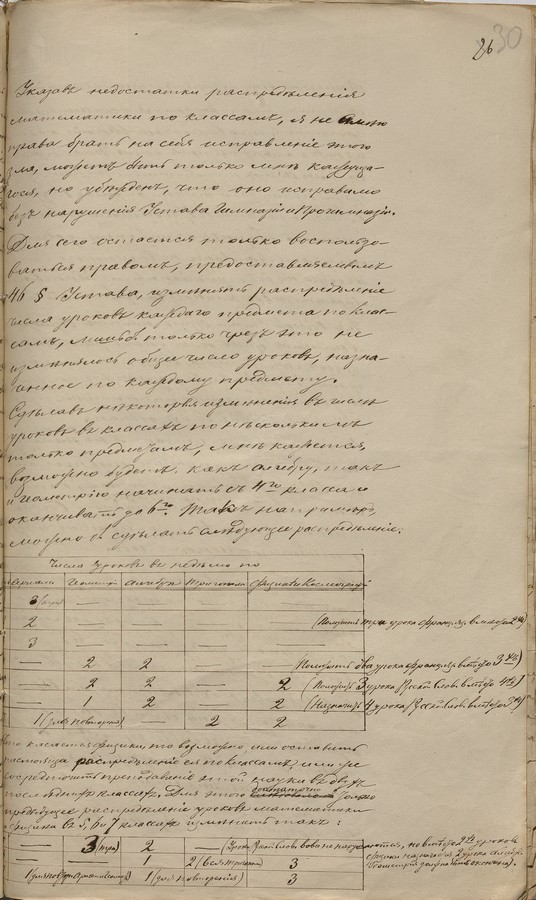 26 30
Указавъ недостатки распредѣленія
математики по классамъ, я не имѣю
права брать на себя исправленіе этого
зла, можетъ быть только мнѣ кажуща-
гося, но убѣжденъ, что оно исправимо
безъ нарушенія Устава Гимназій и Прогимназій.
Для сего остается только воспользо-
ваться правомъ, предоставляемымъ
46 § Устава, измѣнять распредѣленіе
числа уроковъ каждаго предмета по клас-
самъ, лишь только чрезъ это не
измѣнялось общее число уроковъ, назна-
ченное по каждому предмету.
Сдѣлавъ нѣкоторыя измѣненія въ числѣ
уроковъ въ классахъ по нѣсколькимъ
только предметамъ, мнѣ кажется,
возможно будетъ, какъ алгебру, такъ
и геометрію начинать съ 4го класса и
оканчивать до 6го. Такъ напримѣръ,
можно бы сдѣлать слѣдующее распредѣленіе:
Число уроковъ въ недѣлю по
Геометріи Алгебрѣ Тригонометр Физикѣ и Космографіи
3 (три) — — — —
2 — — — — (Положить три урока француз. вмѣсто 2хъ)
3 — — — —
— 2 2 — — (Положить два урока француз. вмѣсто 3хъ)
— 2 2 — 2 (Положить 3 урока Русской Слов. вмѣсто 4хъ)
— 1 2 — 2 (Назначить 4 урока Русской Слов. вмѣсто 3хъ)
1 (для повторенія) — 2 2
Что касается физики, то возможно, или оставить
распредѣленіе ея по классамъ, или же
сосредоточить преподаваніе этой науки въ двухъ
послѣднихъ классахъ. Для этого достаточно только
предъидущее распредѣленіе уроковъ математики
и физики въ 5, 6 и 7 классахъ измѣнить такъ:
— 3 (три) 2 — (Урока Русской Словесности не
1 2 3
1 (для повторенія) 1 (для повторенія) 3